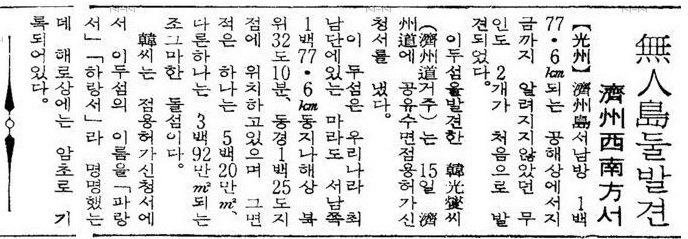 無人島둘발견
濟州西南方서
【光州】濟州島서남방 1백
77·6㎞되는 공해상에서 지
금까지 알려지지않았던 무
인도 2개가 처음으로 발
견되었다.
이두섬을발견한 韓光燮씨
(濟州道거주)는 15일 濟
州道에 공유수면점용허가신
청서를 냈다.
이 무섬은 우리나라 최
남단에있는 마라도 서남쪽
1백77·6㎞동지나해상 북
위32도10분、동경1백25도지
점에 위치하고있으며 그면
적은 하나는 5백20만㎡、
다른하나는 3백92만㎡되는
조그마한 돌섬이다.
韓씨는 점용허가신청서에
서 이두섬의 이름을「파랑
서」「하랑서」라 명명했는
데 해로상에는 암초로 기
록되어있다.